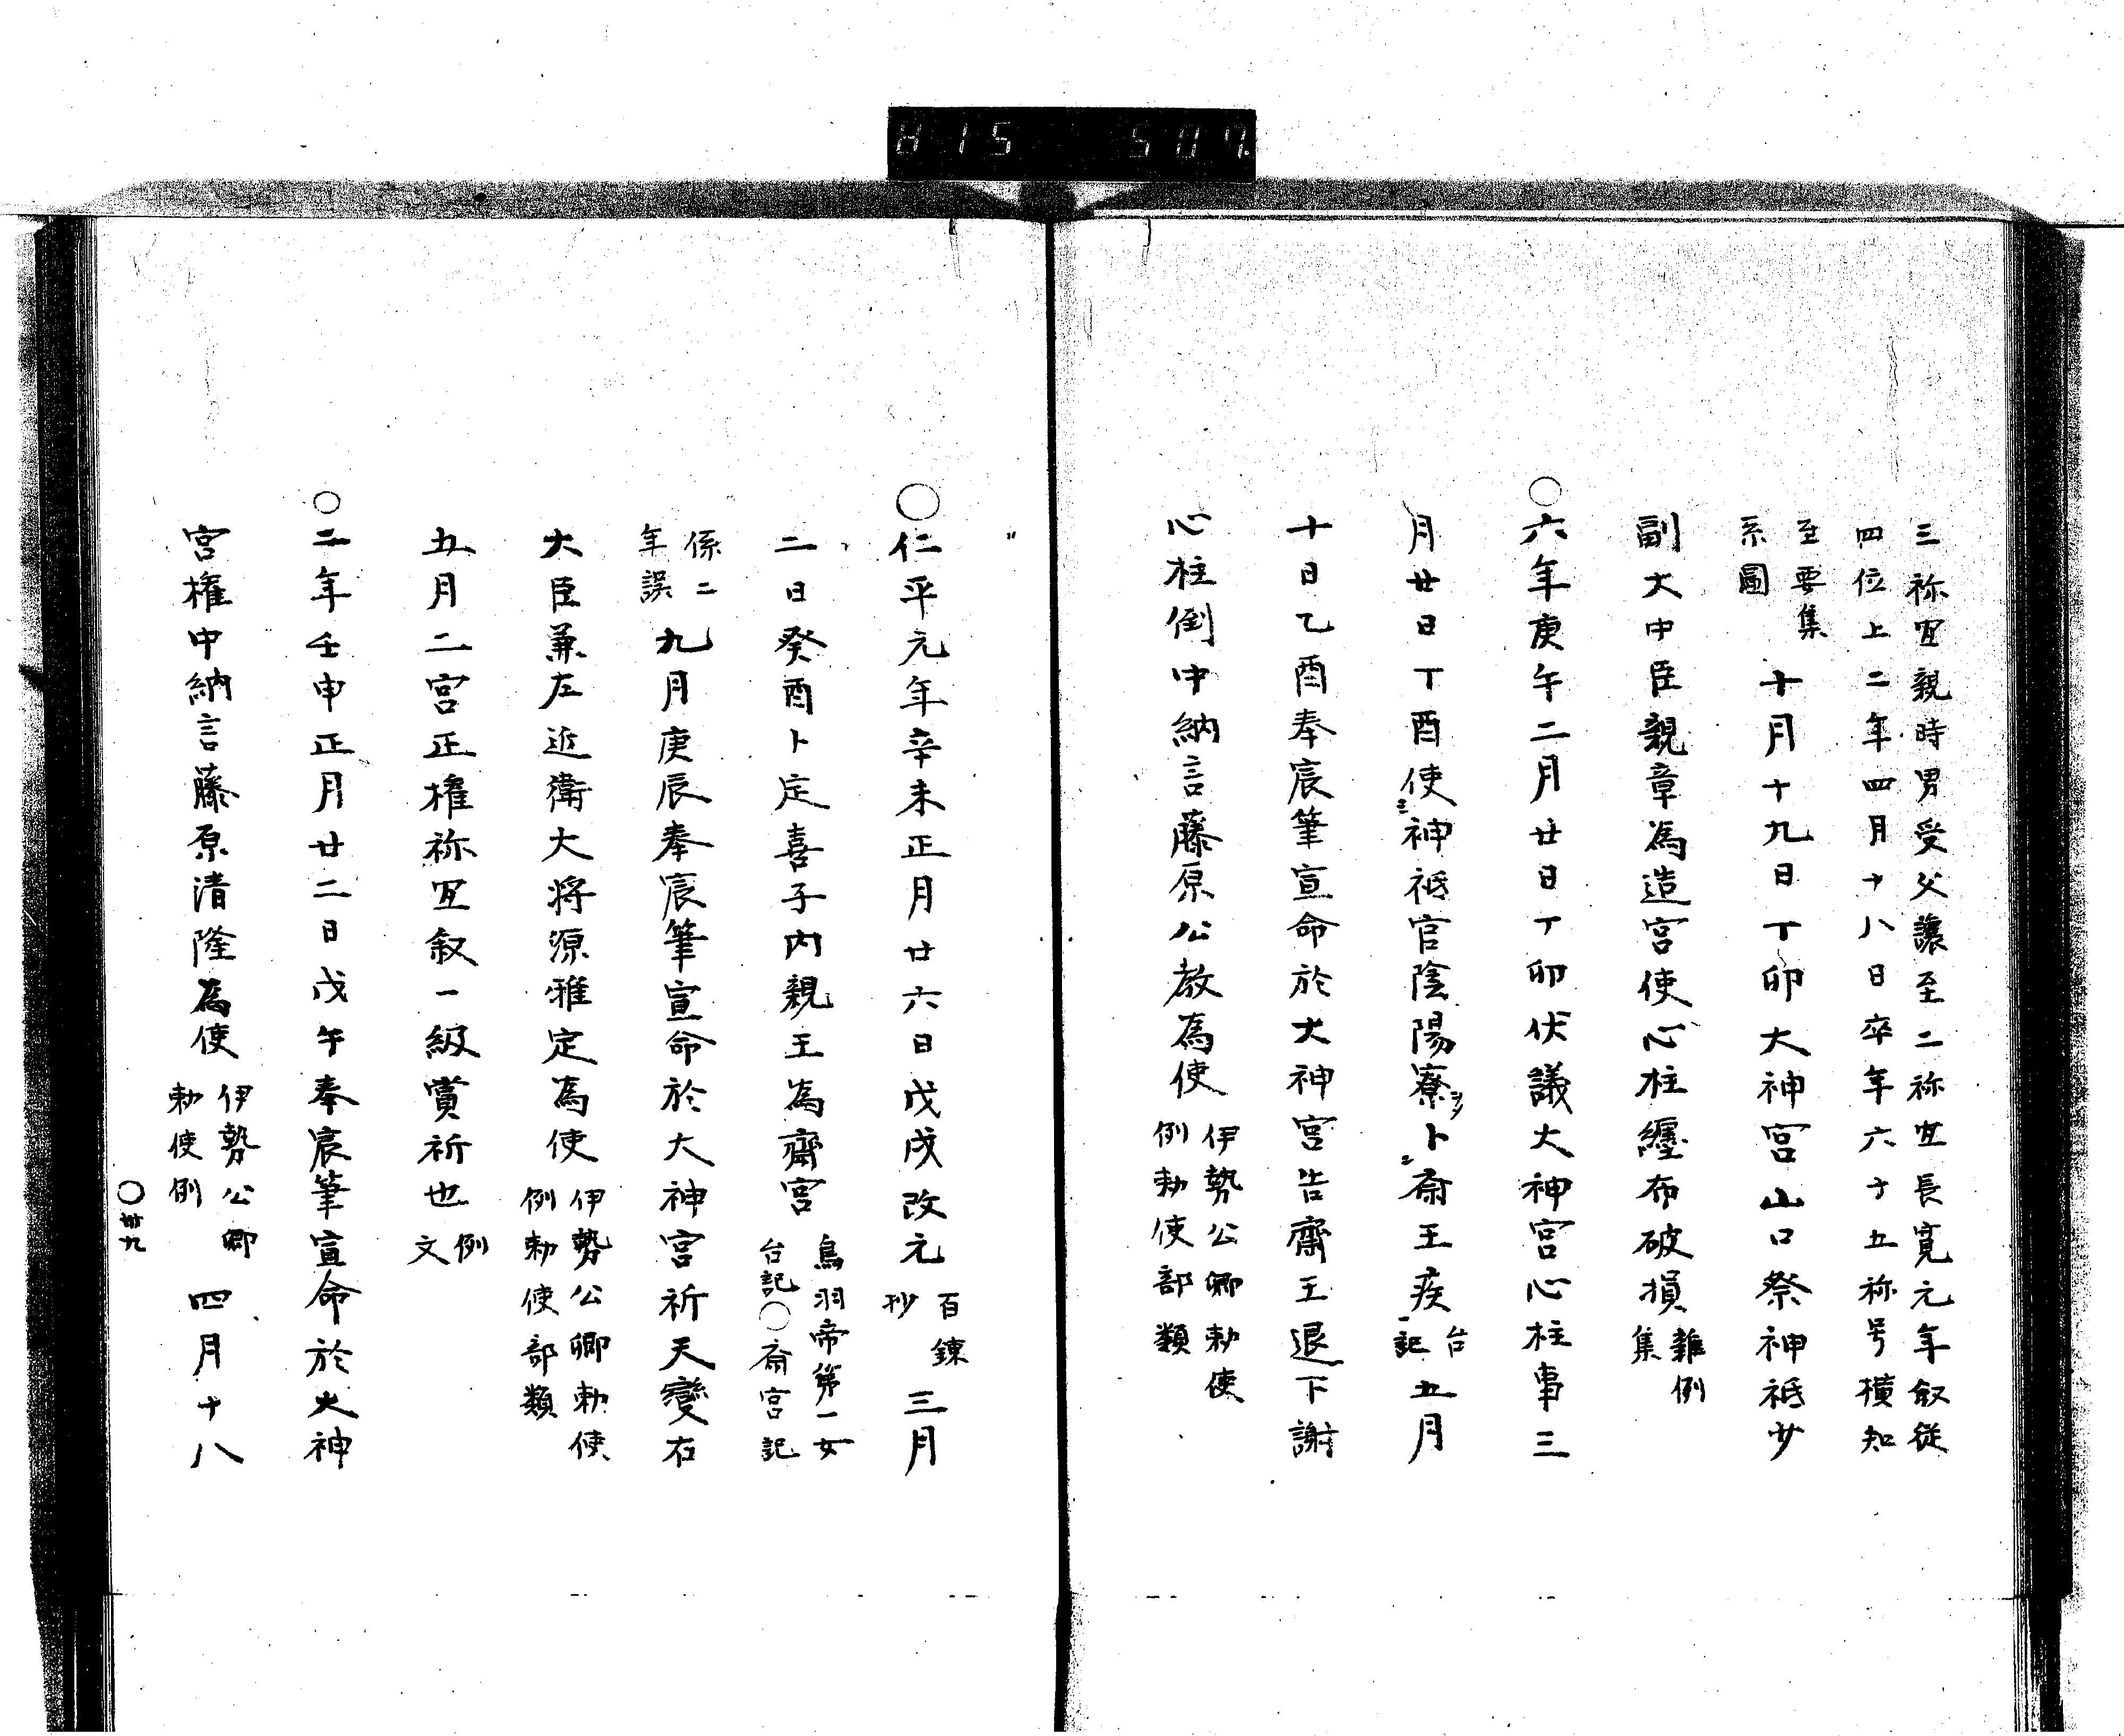 815 507
三祢宜親時男受父讓至二祢宜長寛元年叙従
四位上二年四月十八日卒年六十五祢号横知
至要集
系圖
十月十九日丁卯大神宮山口祭神祗少
副大中臣親章為造宮使心柱纒布破損
雜例
集
〇六年庚午二月廿日丁卯伏議大神宮心柱事三
月廿日丁酉使ニ神祗官陰陽寮ヲシ卜ニ斎王疾一
台
記
五月
十日乙酉奉宸筆宣命於大神宮告齋王退下謝
心柱倒中納言藤原公教為使
伊勢公卿勅使
例勅使部類
〇仁平元年辛未正月廿六日戊戌改元
百錬
抄
三月
二日癸酉卜定喜子内親王為齋宮
鳥羽帝第一女
台記〇斎宮記
係二
年誤
九月庚辰奉宸筆宣命於大神宮祈天變右
大臣兼左近衛大将源雅定為使
伊勢公卿勅使
例勅使部類
五月二宮正権祢宜叙一級賞祈也
例
文
〇二年壬申正月廿二日戊午奉宸筆宣命於大神
宮権中納言藤原清隆為使
伊勢公卿
勅使例
四月十八
〇卅九